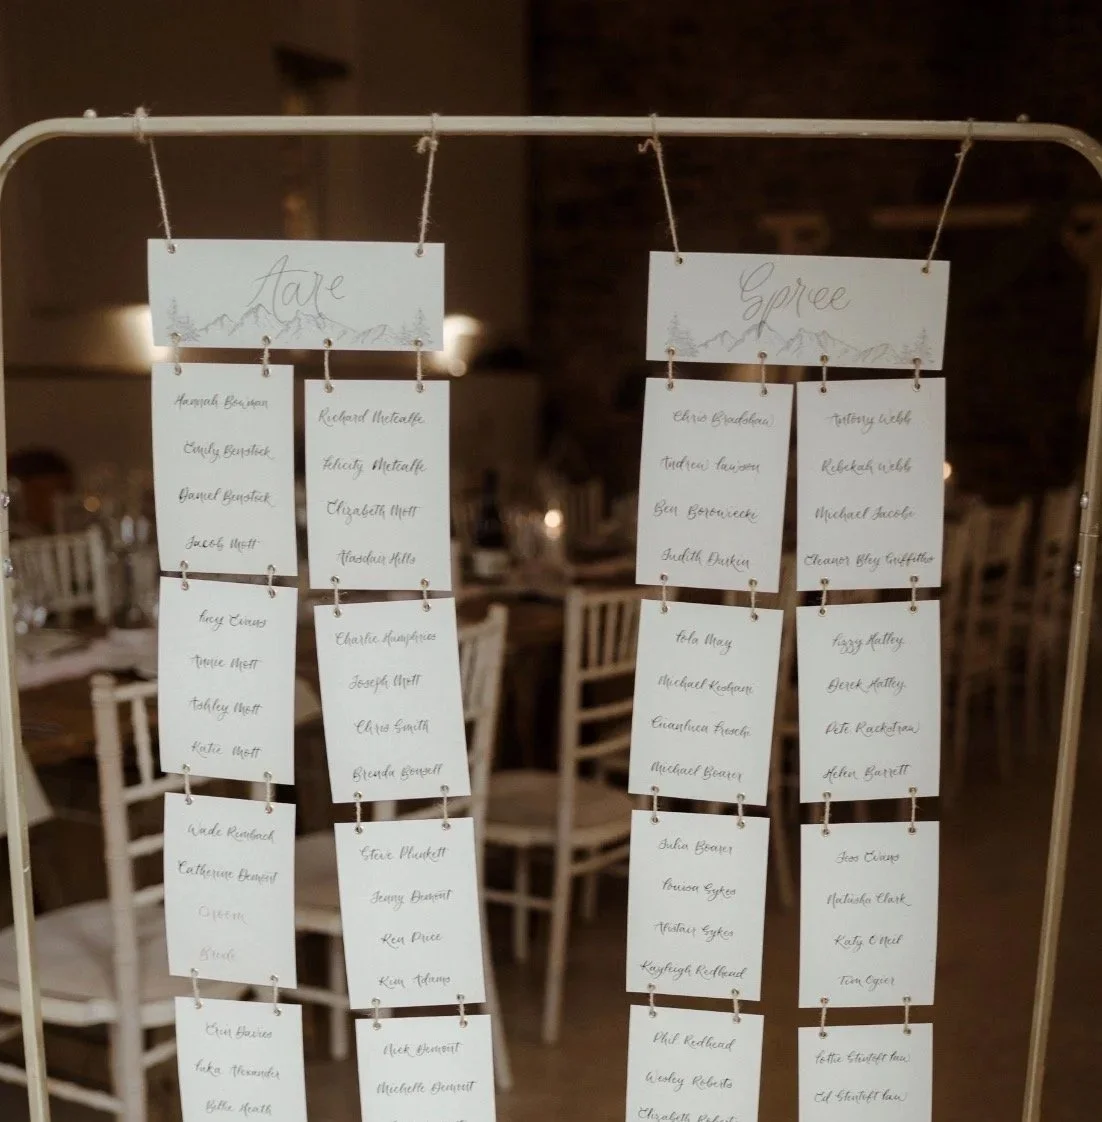 Aare
Hannah Bowman
Emily Benstock
Daniel Benstock
Jacob Mott
Lucy Evans
Annie Mott
Ashley Mott
Katie Mott
Wade Rimbach
Catherine Demont
Groom
Bride
Erin Davies
Luka Alexander
Billie Heath
Richard Metcalfe
Felicity Metcalfe
Elizabeth Mott
Alasdair Hills
Charlie Humphries
Joseph Mott
Chris Smith
Brenda Bonsell
Steve Plunkett
Jenny Demont
Ken Price
Kim Adams
Nick Demont
Michelle Demont
Spree
Chris Bradshaw
Andrew Lawson
Ben Borowiecki
Judith Durkin
Lola May
Michael Keohane
Gianluca
Michael Boarer
Julia Boarer
Louisa Sykes
Alistair Sykes
Kayleigh Redhead
Phil Redhead
Wesley Roberts
Elizabeth Roberts
Antony Webb
Rebekah Webb
Michael Jacobs
Eleanor Bley Griffiths
Lizzy Hatley
Derek Hatley
Pete Rackstraw
Helen Barrett
Jess Evans
Natasha Clark
Katy O'Neil
Tim Ogier
Lottie Stentoft Law
Ed Stentoft Law